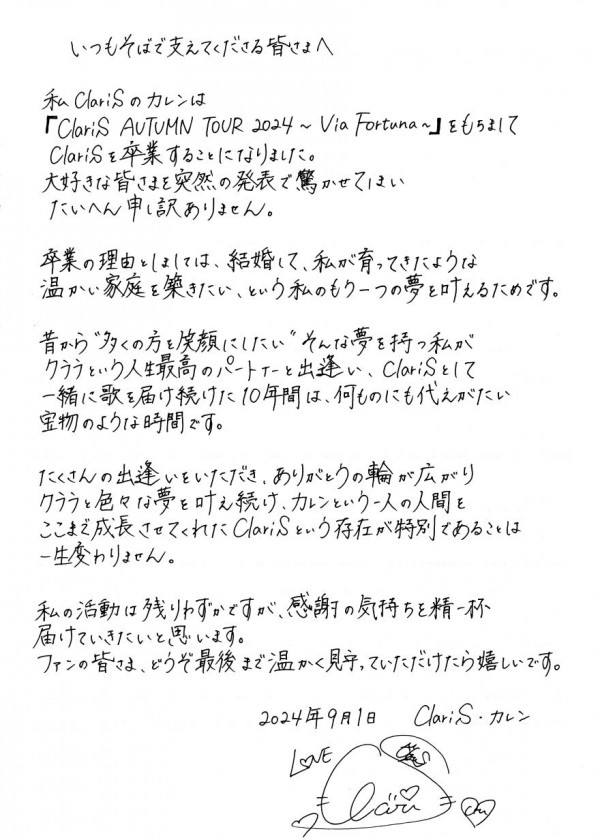 いつもそばで支えてくださる皆さまへ
私ClariSのカレンは
『ClariS AUTUMN TOUR 2024 ~ Via Fortuna~』をもちまして
ClariSを卒業することになりました。
大好きな皆さまを突然の発表で驚かせてしまい
たいへん申し訳ありません。
卒業の理由としましては、結婚して、私が育ってきたような
温かい家庭を築きたい、という私のもう一つの夢を叶えるためです。
昔から"多くの方を笑顔にしたい"そんな夢を持つ私が
クララという人生最高のパートナーと出逢い、ClariSとして
一緒に歌を届け続けた10年間は、何ものにも代えがたい
宝物のような時間です。
たくさんの出逢いをいただき、ありがとうの輪が広がり
クララと色々な夢を叶え続け、カレンという一人の人間を
ここまで成長させてくれたClariSという存在が特別であることは
一生変わりません。
私の活動は残りわずかですが、感謝の気持ちを精一杯
届けていきたいと思います。
ファンの皆さま、どうぞ最後まで温かく見守っていただけたら嬉しいです。
2024年9月1日 ClariS・カレン
LOVE